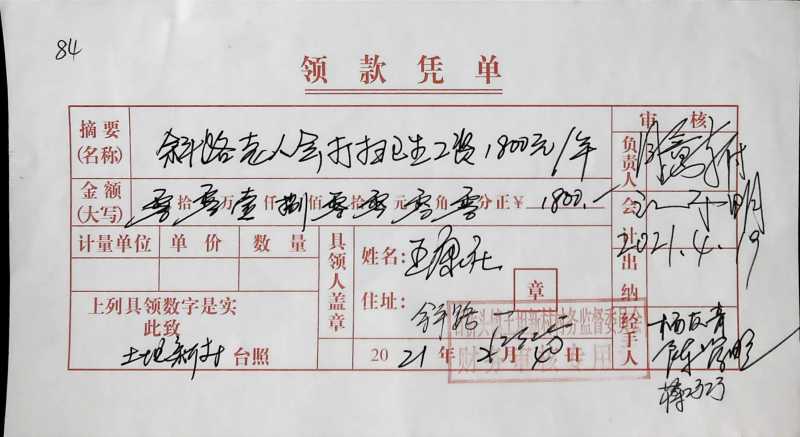 84
领款凭单
摘要(名称) 斜路老人会打扫卫生工资1800元/年
审核
金额(大写) 零拾零万壹仟捌佰零拾零元零角零分正¥1800.—
负责人 同意支付
会计 2021.4.19
计量单位 单价 数量
具领人盖章
姓名: 王康社
住址: 斜路
章
上列具领数字是实
此致
土坦新村 台照
2021年 月 日
出纳
经手人 杨友青
财务审核专用